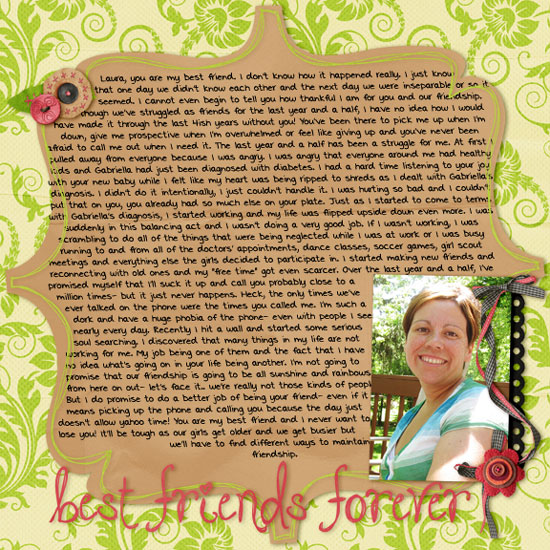 Laura, you are my best friend. I don't know how it happened really. I just know
that one day we didn't know each other and the next day we were inseparable or so it
seemed. I cannot even begin to tell you how thankful I am for you and our friendship.
though we've struggled as friends for the last year and a half, I have no idea how I would
have made it through the last 4ish years without you! You've been there to pick me up when I'm
down, give me prospective when I'm overwhelmed or feel like giving up and you've never been
afraid to call me out when I need it. The last year and a half has been a struggle for me. At first I
pulled away from everyone because I was angry. I was angry that everyone around me had healthy
kids and Gabriella had just been diagnosed with diabetes. I had a hard time listening to your joy
with your new baby while I felt like my heart was being ripped to shreds as I dealt with Gabriella's
diagnosis. I didn't do it intentionally, I just couldn't handle it. I was hurting so bad and I couldn't
that on you, you already had so much else on your plate. Just as I started to come to terms
with Gabriella's diagnosis, I started working and my life was flipped upside down even more. I was
suddenly in this balancing act and I wasn't doing a very good job. If I wasn't working, I was
scrambling to do all of the things that were being neglected while I was at work or I was busy
running to and from all of the doctors' appointments, dance classes, soccer games, girl scout
meetings and everything else the girls decided to participate in. I started making new friends and
reconnecting with old ones and my "free time" got even scarcer. Over the last year and a half, I've
promised myself that I'll suck it up and call you probably close to a
million times- but it just never happens. Heck, the only times we've
ever talked on the phone were the times you called me. I'm such a
dork and have a huge phobia of the phone- even with people I see
nearly every day. Recently I hit a wall and started some serious
soul searching. I discovered that many things in my life are not
working for me. My job being one of them and the fact that I have
no idea what's going on in your life being another. I'm not going to
promise that our friendship is going to be all sunshine and rainbows
from here on out- let's face it... we're really not those kinds of people
But I do promise to do a better job of being your friend- even if it
means picking up the phone and calling you because the day just
doesn't allow yahoo time! You are my best friend and I never want to
lose you! It'll be tough as our girls get older and we get busier but
we'll have to find different ways to maintain
friendship.
best friends forever